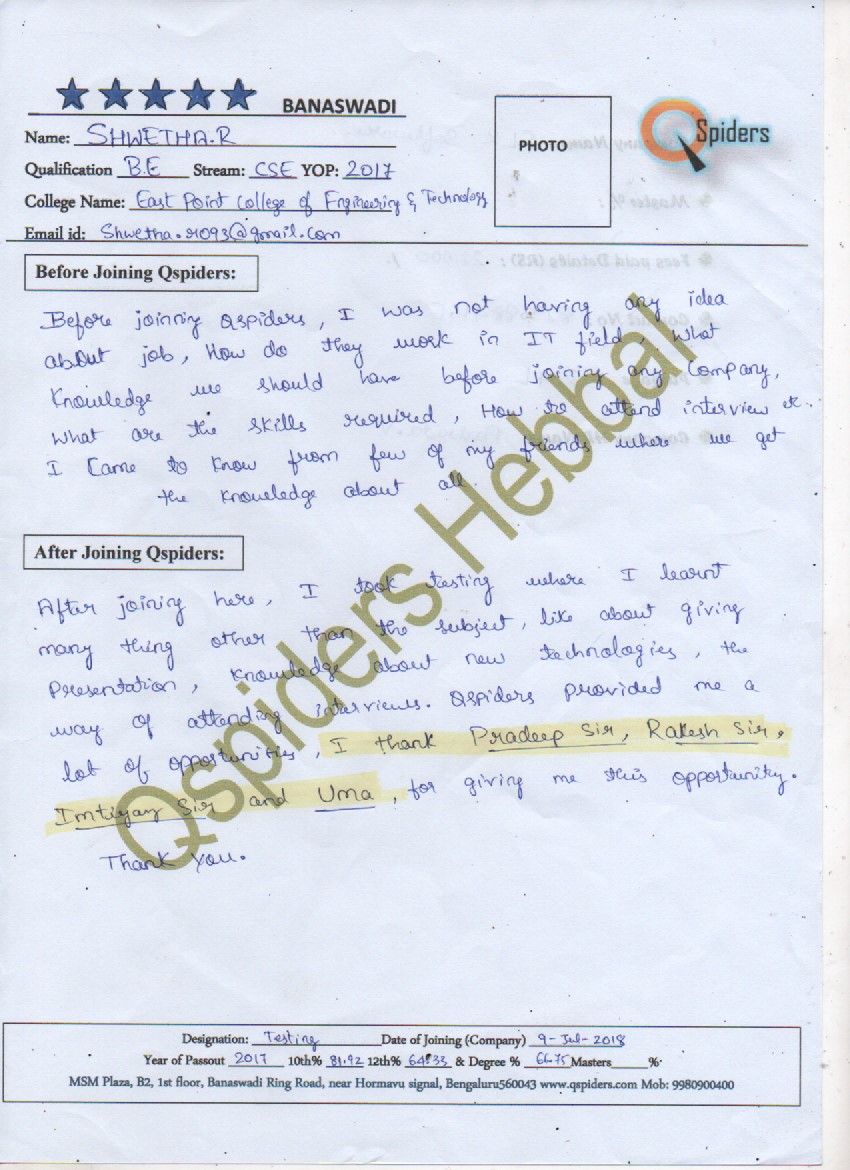 BANASWADI
Name: SHWETHA.R
PHOTO
Spiders
Qualification B.E Stream: CSE YOP: 2017
College Name: East Point College of Engineering & Technology
Email id: Shwetha.r093@gmail.com
Before Joining Qspiders:
Before joining Qspiders, I was not having any idea
about job, How do they work in IT field, What
Knowledge we should have before joining any Company,
What are the skills required, How to attend interview etc.
I Came to know from few of my friends where we get
the knowledge about all.
After Joining Qspiders:
After joining here, I took testing where I learnt
many thing other than the subject, like about giving
Presentation, knowledge about new technologies, the
way of attending interviews. Qspiders provided me a
lot of opportunities, I thank Pradeep Sir, Rakesh Sir,
Imtiyaz Sir and Uma, for giving me this opportunity.
Thank You.
Qspiders Hebbal
Designation: Testing Date of Joining (Company) 9-Jul-2018
Year of Passout 2017 10th% 81.92 12th% 64.33 & Degree % 66.75 Masters %
MSM Plaza, B2, 1st floor, Banaswadi Ring Road, near Hormavu signal, Bengaluru560043 www.qspiders.com Mob: 9980900400